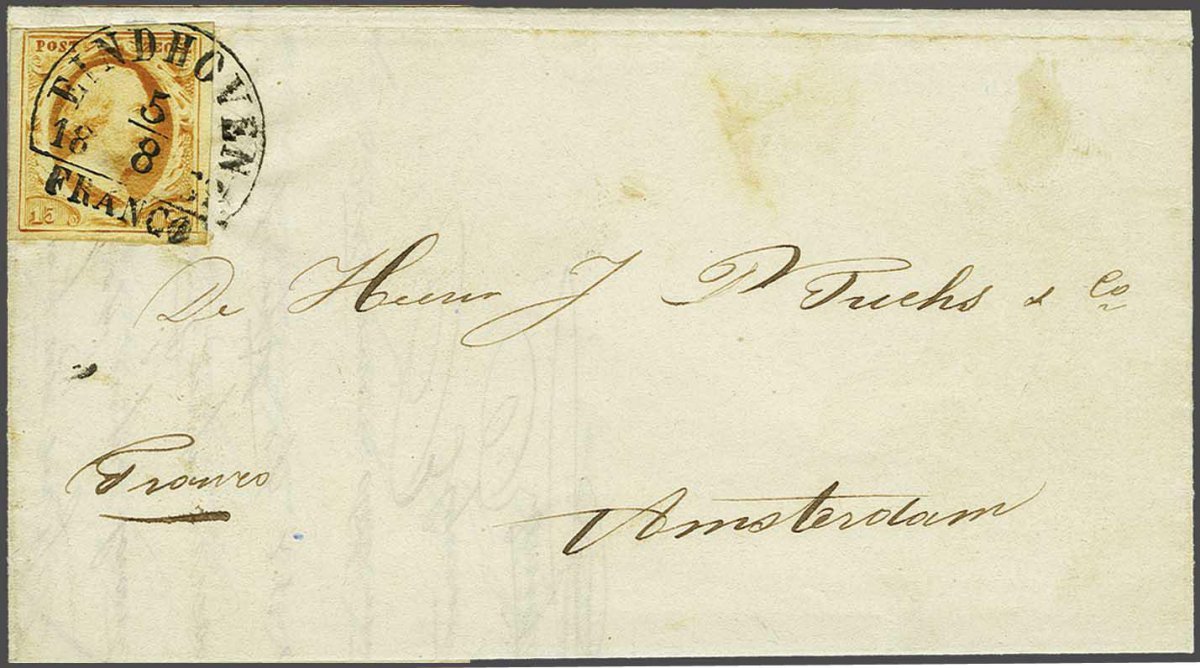 POST
EINDHOVEN
5/8
18
FRANCO
15
De Heeren J P Fuchs & Co
Franco
Amsterdam